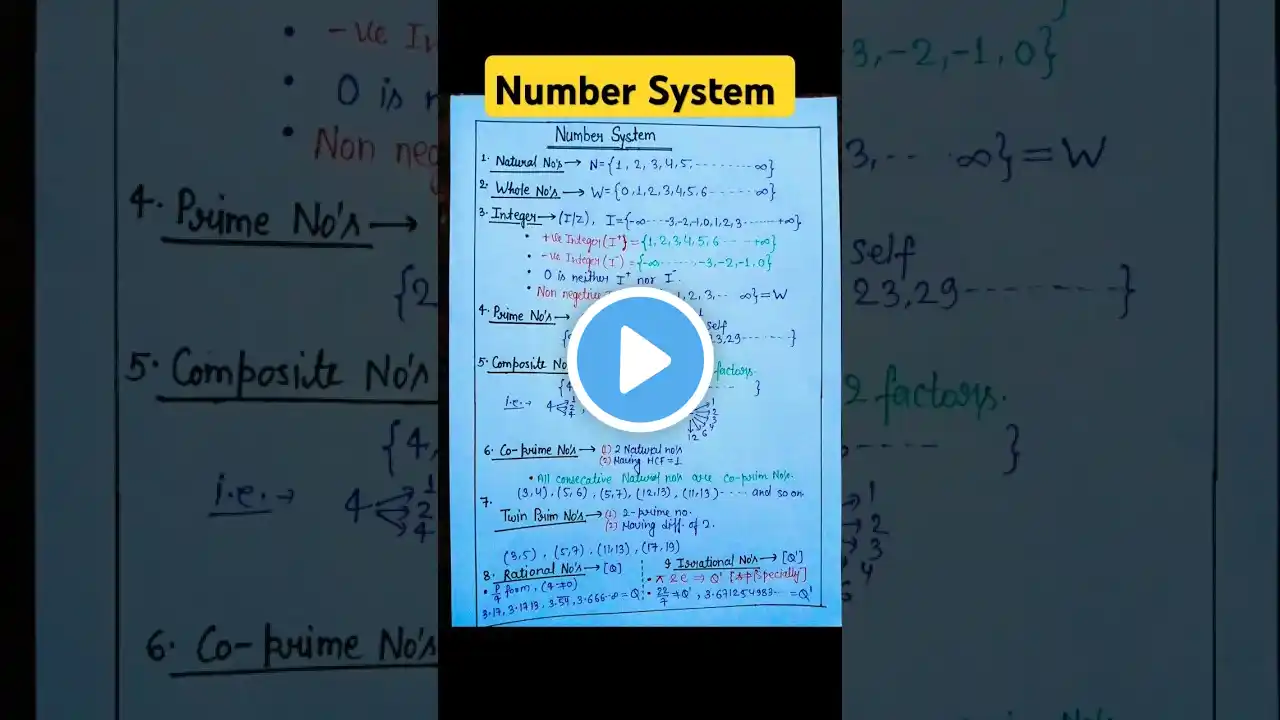 Number System
Number System
1. Natural No's → N={1, 2, 3, 4, 5, ---------- ∞}
2. Whole No's → W={0,1,2,3,4,5,6------- ∞}
3. Integer → (I/Z), I={-∞-----3,-2,-1,0,1,2,3-------+∞}
• +ve Integer(I⁺)={1,2,3,4,5,6------+∞}
• -ve Integer(I⁻)={-∞-------,-3,-2,-1,0}
• 0 is neither I⁺ nor I⁻.
• Non negetive 1,2,3,-- ∞}=W
4. Prime No's →
self
23,29--------}
5. Composite No's
2 factors.
{4, ------ }
i.e. → 4 1 2 4
1 2 3 4 6 12
6. Co-prime No's → (1) 2 Natural no's
(2) Having HCF=1
• All consecative Natural no's are co-prim No's.
(3,4), (5,6), (5,7), (12,13), (11,13)---- and so on
7. Twin Prim No's → (1) 2-prime no.
(2) Having diff. of 2.
(3,5), (5,7), (11,13), (17,19)
8. Rational No's → [Q]
• p/q form, (q≠0)
3.17, 3.1713, 3.54, 3.666--∞ = Q
9 Irrational No's → [Q']
• π & e ⇒ Q'
• 22/7 ≠ Q', 3.671254983--- = Q'
-ve In
0 is n
Non neg
4. Prime No's →
{2
5. Composite No's
{4,
i.e. → 4 1 2 4
6. Co-prime No's
-3,-2,-1,0}
3,-- ∞}=W
self
23,29----------}
2 factors.
------ }
1
2
3
4